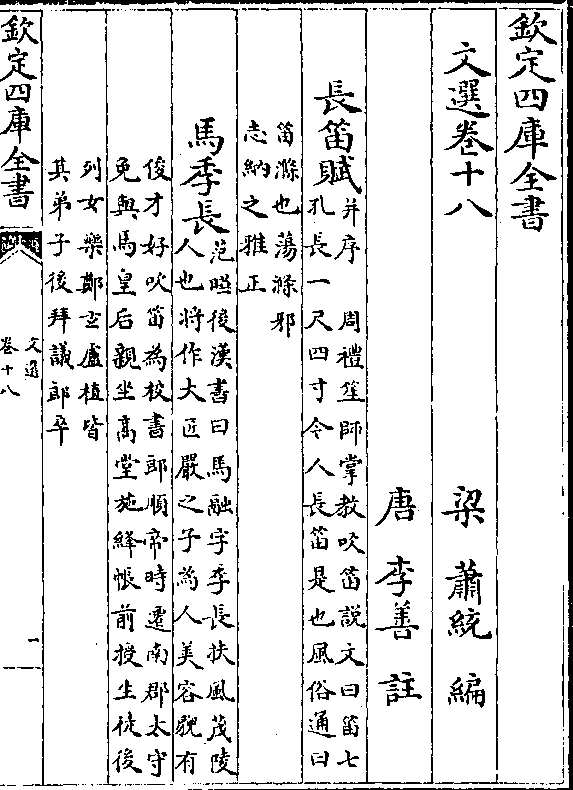 欽定四庫全書
文選卷十八
梁 蕭統 編
唐 李善 註
長笛賦
并序 周禮笙師掌教吹笛説文曰笛七
孔長一尺四寸令人長笛是也風俗通曰
笛滌也蕩滌邪
志納之雅正
馬季長
范曄後漢書曰馬融字季長扶風茂陵
人也将作大匠嚴之子為人美容貌有
俊才好吹笛為校書郎順帝時遷南郡太守
免與馬皇后親坐髙堂施絳帳前授生徒後
列女樂鄭玄盧植皆
其弟子後拜議郎卒
欽定四庫全書
文選
卷十八
一